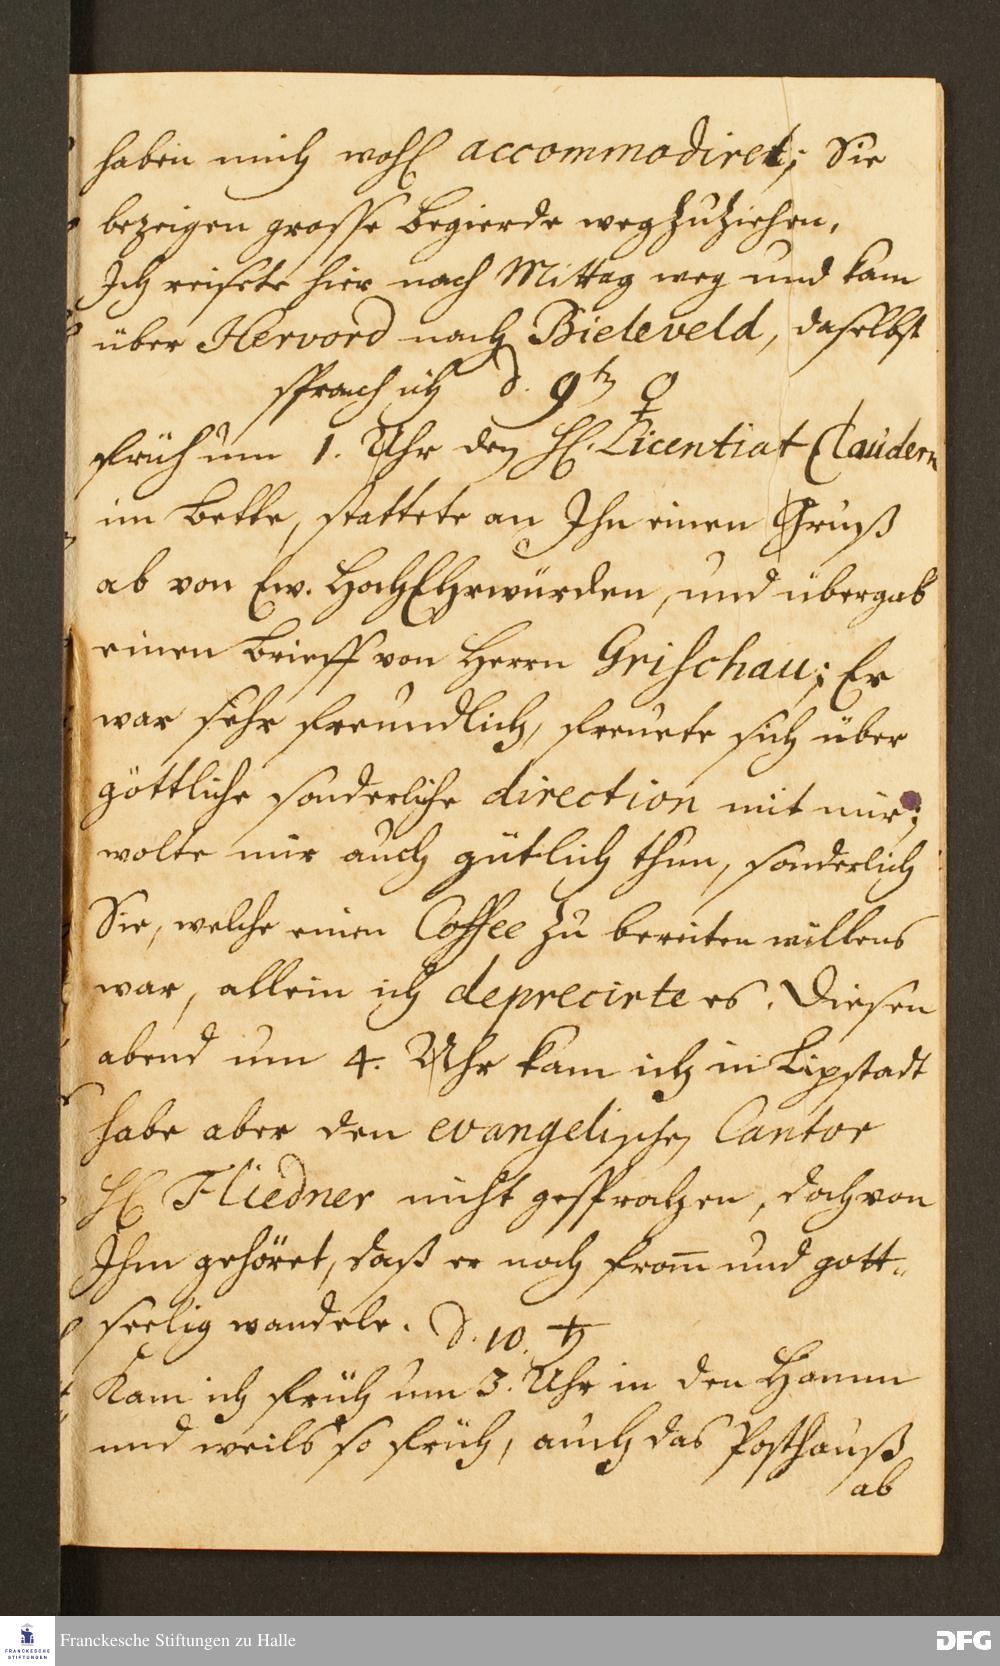 haben mich wohl accommodiret; Sie
bezeigen grosse Begierde wegzuziehen,
Ich reisete hier nach Mittag weg und kam
über Hervord nach Bieleveld, daselbst
sprach ich d. 9t ♀
früh um 1. Uhr den H. Licentiat Claudern
im Bette, stattete an Ihn einen Gruß
ab von Ew. HochEhrwürden, und übergab
einen Brieff von Herrn Grischau; Er
war sehr freundlich, freuete sich über
göttliche sonderliche direction mit mir;
wolte mir auch gütlich thun, sonderlich
Sie, welche einen Coffee zu bereiten willens
war, allein ich deprecirte es. Diesen
abend um 4. Uhr kam ich in Lipstadt
habe aber den evangelischen Cantor
H Fliedner nicht gesprochen, doch von
Ihm gehöret, daß er noch from̅ und gott-
seelig wandele. d. 10. ♄
Kam ich früh um 3. Uhr in den Hamm
und weils so früh, auch das Posthauß
ab
Franckesche Stiftungen zu Halle
FRANCKESCHE
STIFTUNGEN
DFG